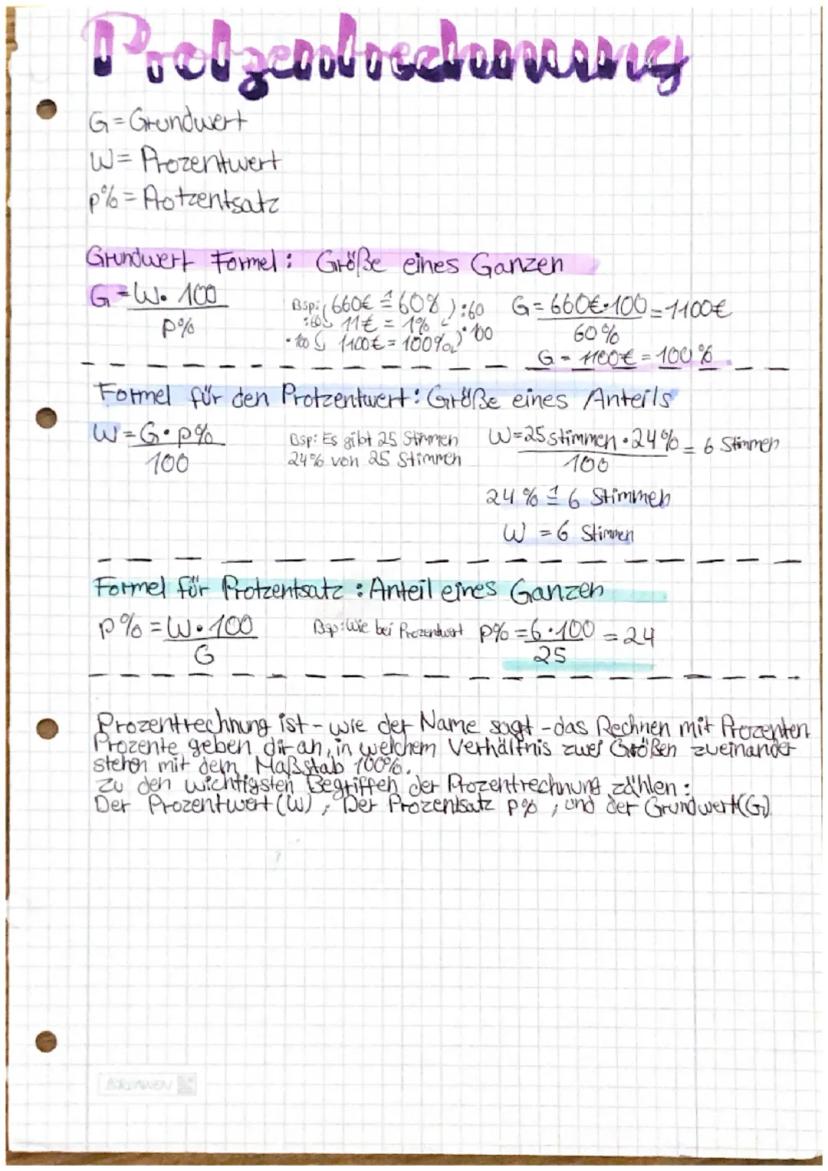 Protzentrechnung
G = Grundwert
W = Prozentwert
p% = Protzentsatz
Grundwert Formel: Größe eines Ganzen
G = W • 100 / p%
Bsp: 660€ ≙ 60% ) :60
:60 11€ = 1%
•100 1100€ = 100% •100
G = 660€•100 / 60% = 1100€
G = 1100€ = 100%
Formel für den Protzentwert: Größe eines Anteils
W = G • p% / 100
Bsp: Es gibt 25 Stimmen
24% von 25 Stimmen
W = 25 Stimmen • 24% / 100 = 6 Stimmen
24% ≙ 6 Stimmen
W = 6 Stimmen
Formel für Protzentsatz : Anteil eines Ganzen
p% = W • 100 / G
Bsp: Wie bei Prozentwert
p% = 6 • 100 / 25 = 24
Prozentrechnung ist - wie der Name sagt - das Rechnen mit Prozenten
Prozente geben dir an, in welchem Verhältnis zwei Größen zueinander
stehen mit dem Maßstab 100%.
Zu den wichtigsten Begriffen der Prozentrechnung zählen:
Der Prozentwert (W), Der Prozentsatz p%, und der Grundwert (G)